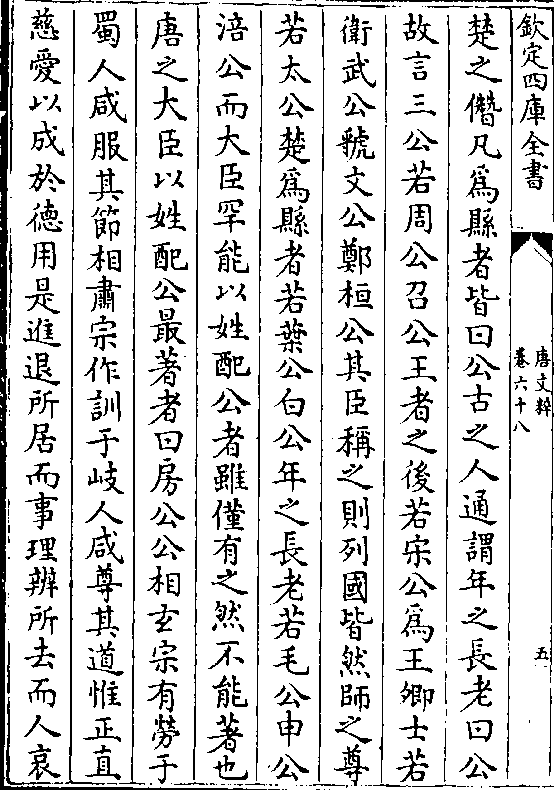 欽定四庫全書
唐文粹
卷六十八
五
楚之僭凡為縣者皆曰公古之人通謂年之長老曰公
故言三公若周公召公王者之後若宋公為王卿士若
衛武公虢文公鄭桓公其臣稱之則列國皆然師之尊
若太公楚為縣者若葉公白公年之長老若毛公申公
涪公而大臣罕能以姓配公者雖僅有之然不能著也
唐之大臣以姓配公最著者曰房公公相玄宗有勞于
蜀人咸服其節相肅宗作訓于岐人咸尊其道惟正直
慈愛以成於德用是進退所居而事理辨所去而人哀